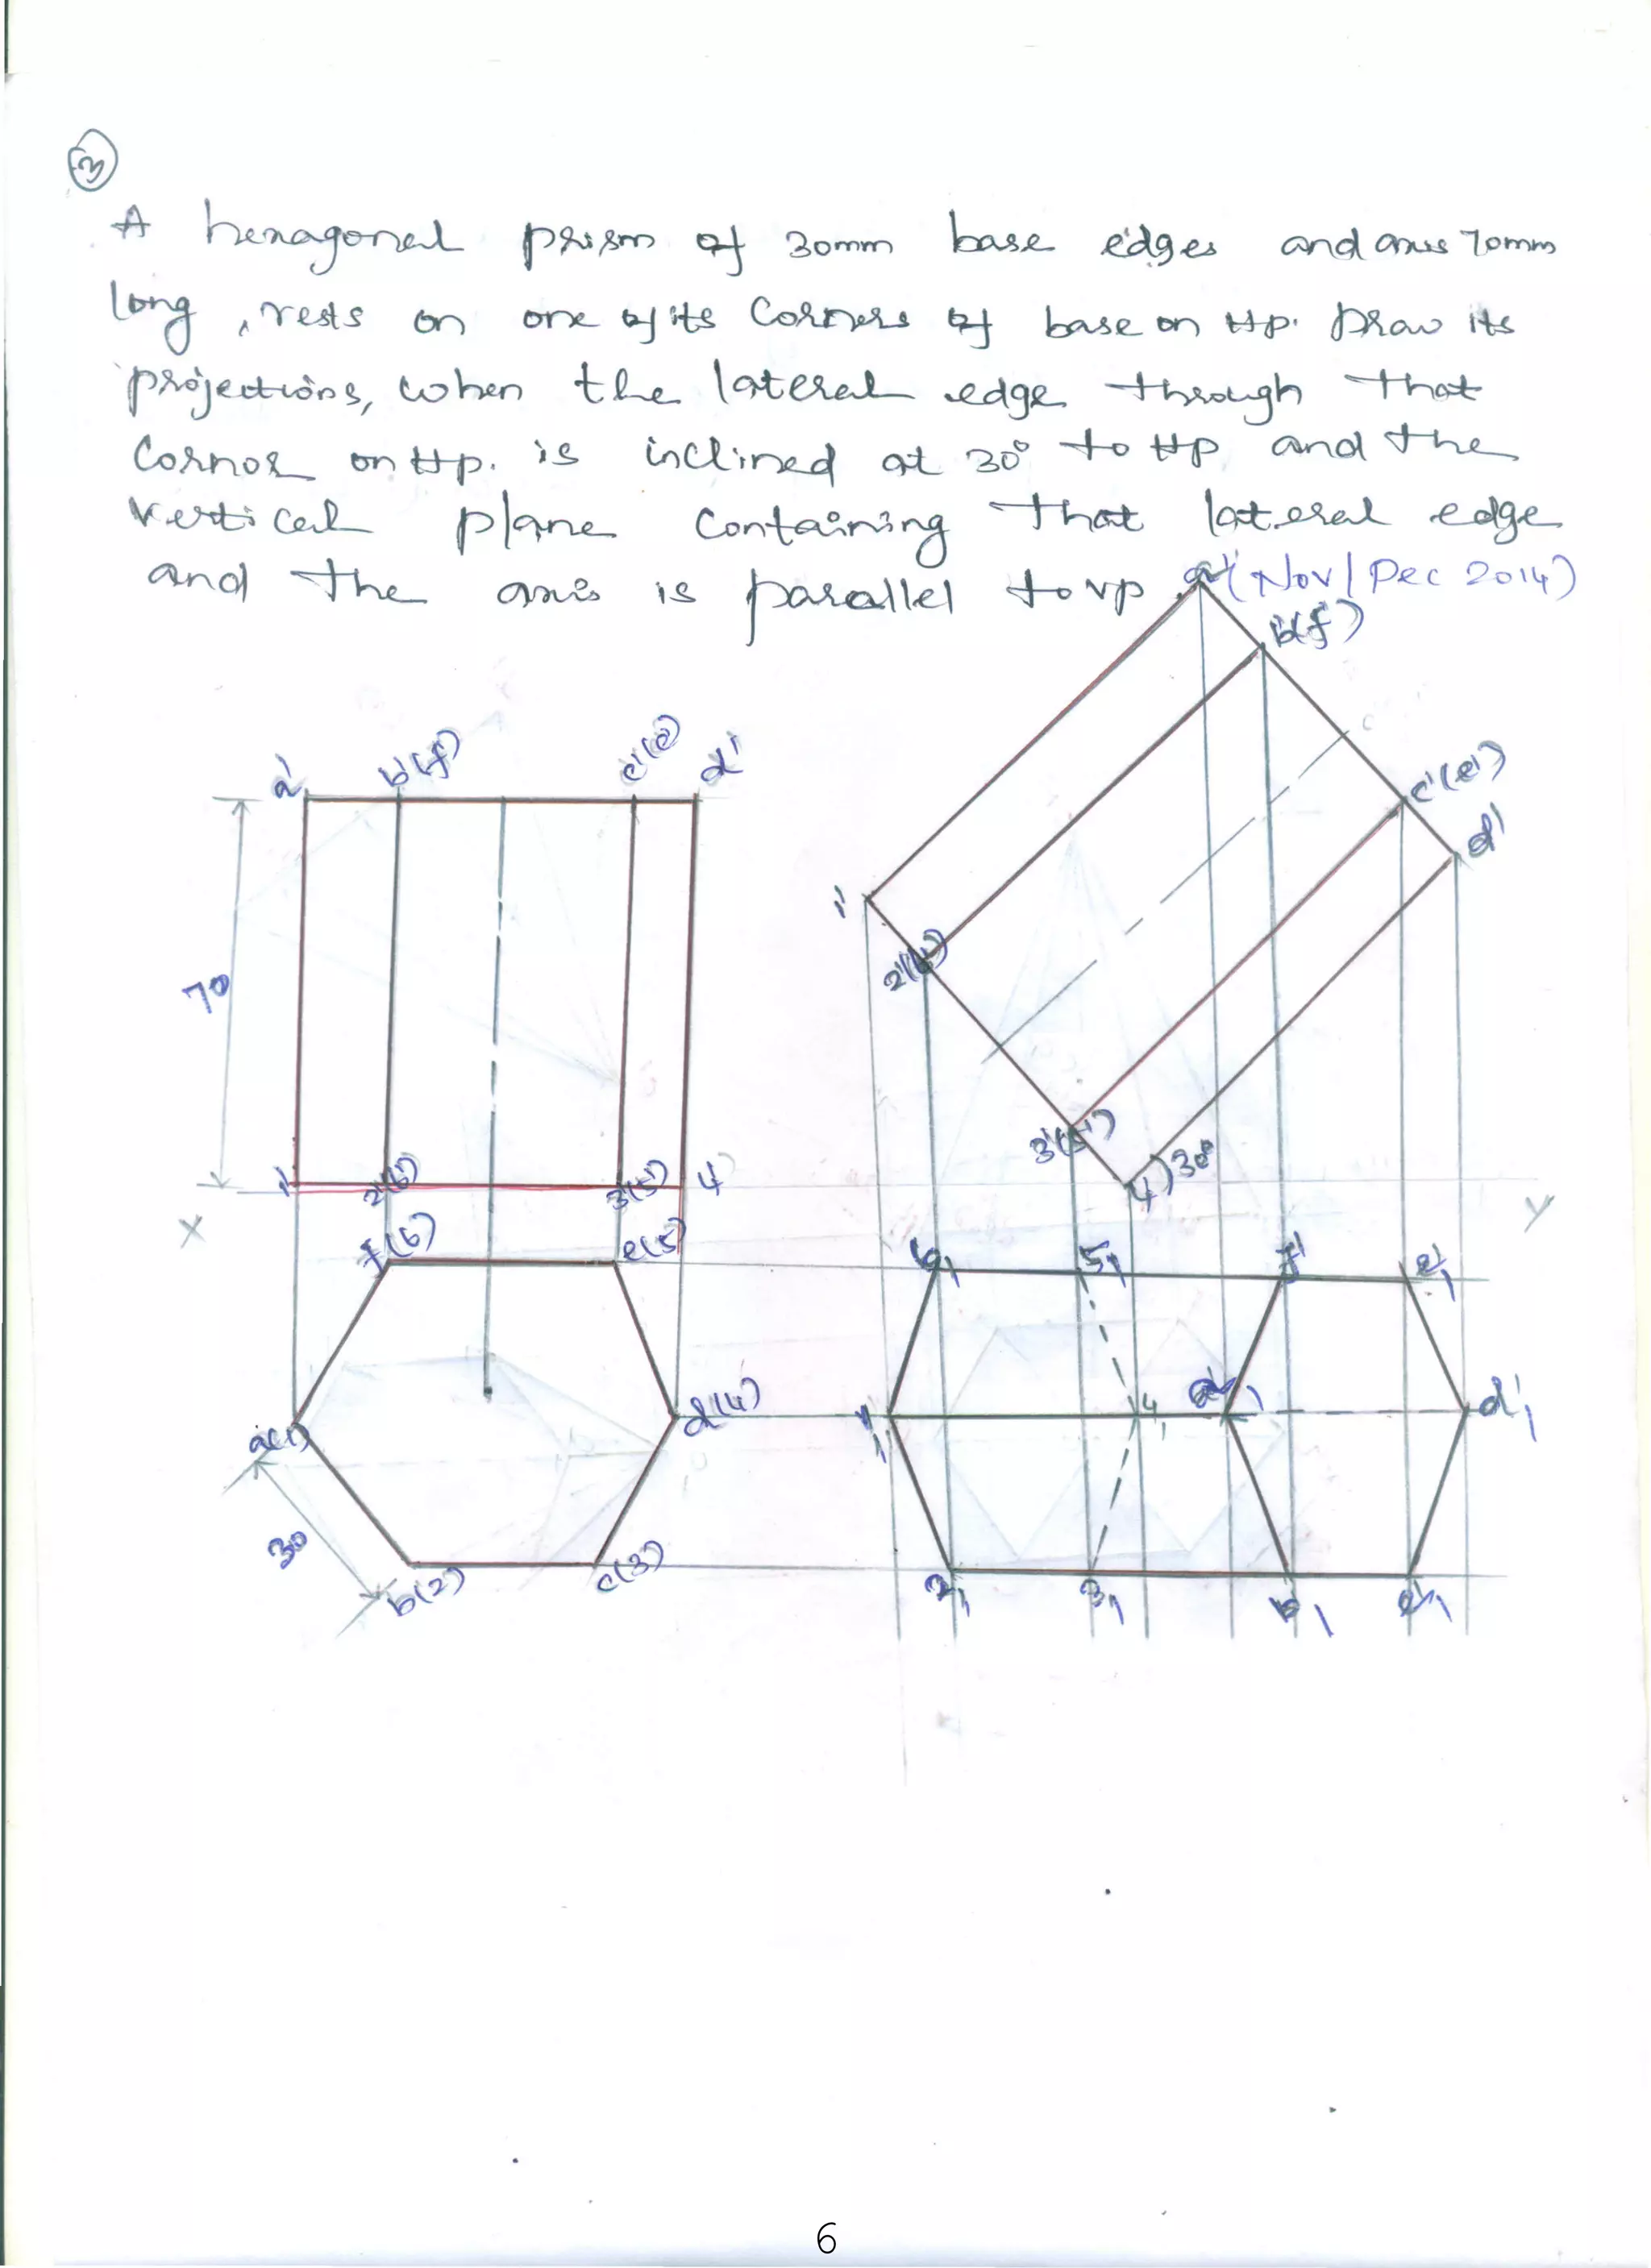 3
A hexagonal prism of 30mm base edges and axis 70mm
long, rests on one of its corners of base on Hp. Draw its
projections, when the lateral edge through that
Cornor on Hp. is inclined at 30° to Hp and the
vertical plane containing that lateral edge
and the axis is parallel to vp (Nov/Dec 2014)
a'
b'(f')
a' b'(f') c'(e') d'
c'(e')
d'
1'
2'(6')
70
3'(5') 30°
1' 2'(6') 3'(5') 4' 4'
X Y
f(6) e(5) 6₁ 5₁ f' e'₁
a(1) d(4) 1₁ 4₁ a'₁ d'₁
30
b(2) c(3) 2₁ 3₁ b'₁ c'₁
6